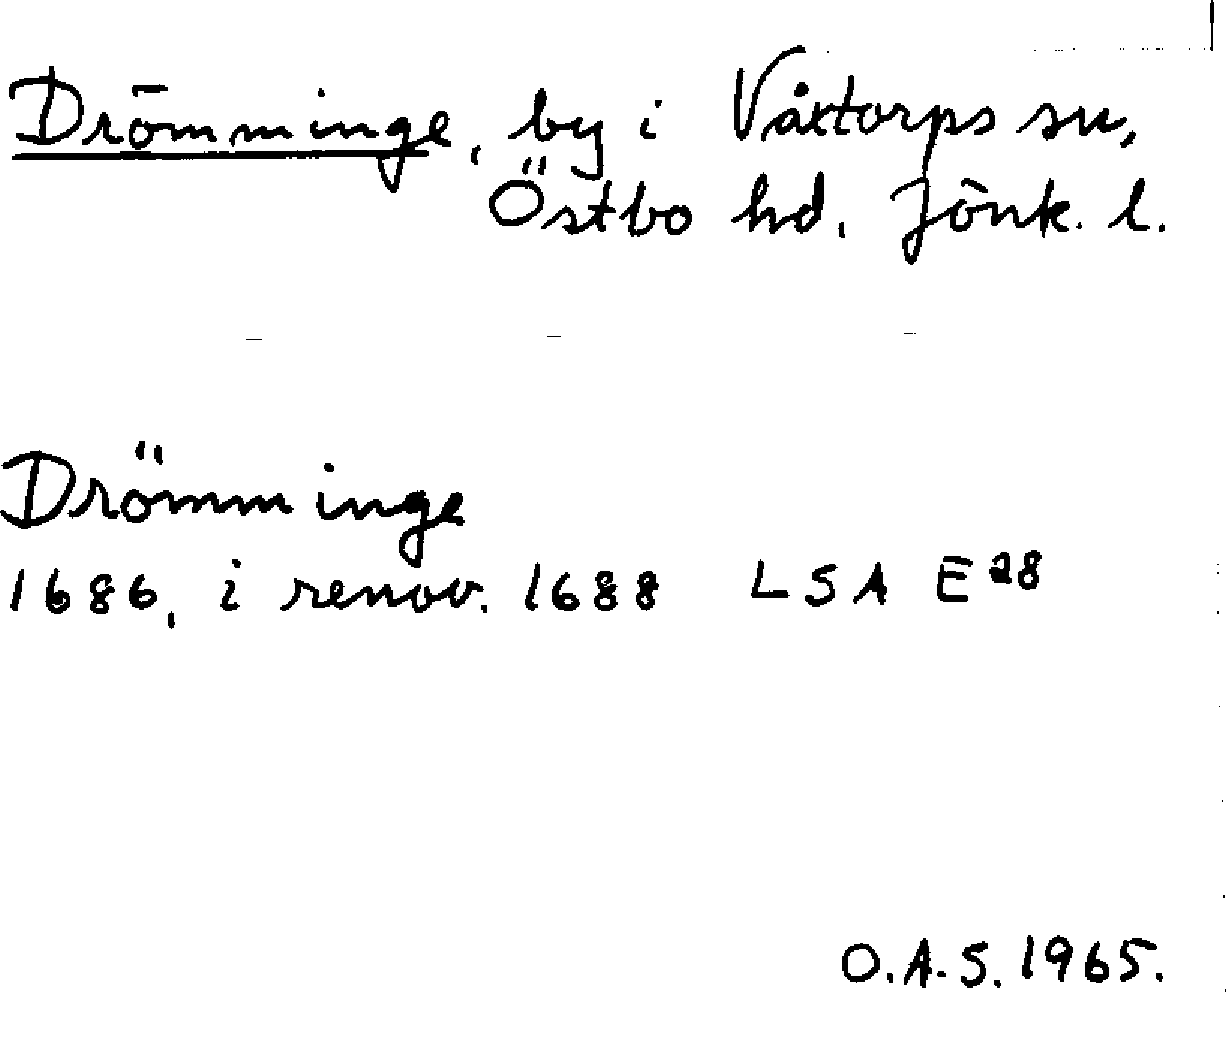 Drömminge, by i Våxtorps sn,
Östbo hd. Jönk. l.
Drömminge
1686, i renov. 1688 LSA E 28
O.A.S. 1965.